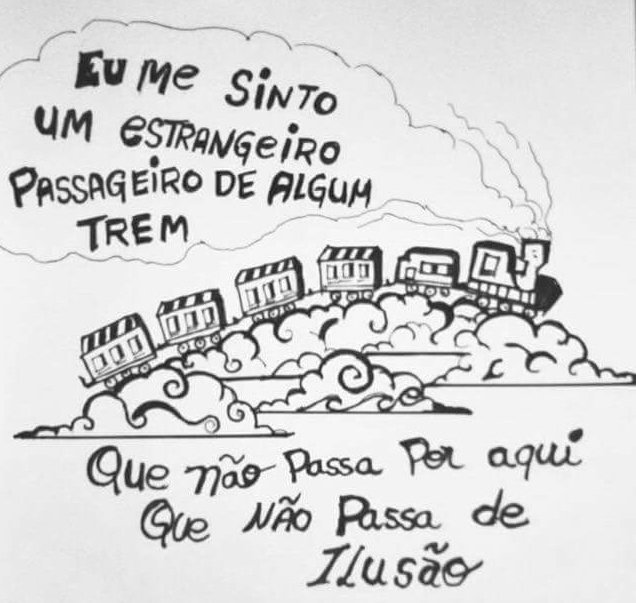 EU Me SiNTO
UM eSTRANGeiRO
PASSAGEiRO DE ALGUM
TREM
Que não Passa Por aqui
Que NÃO Passa de
Ilusão